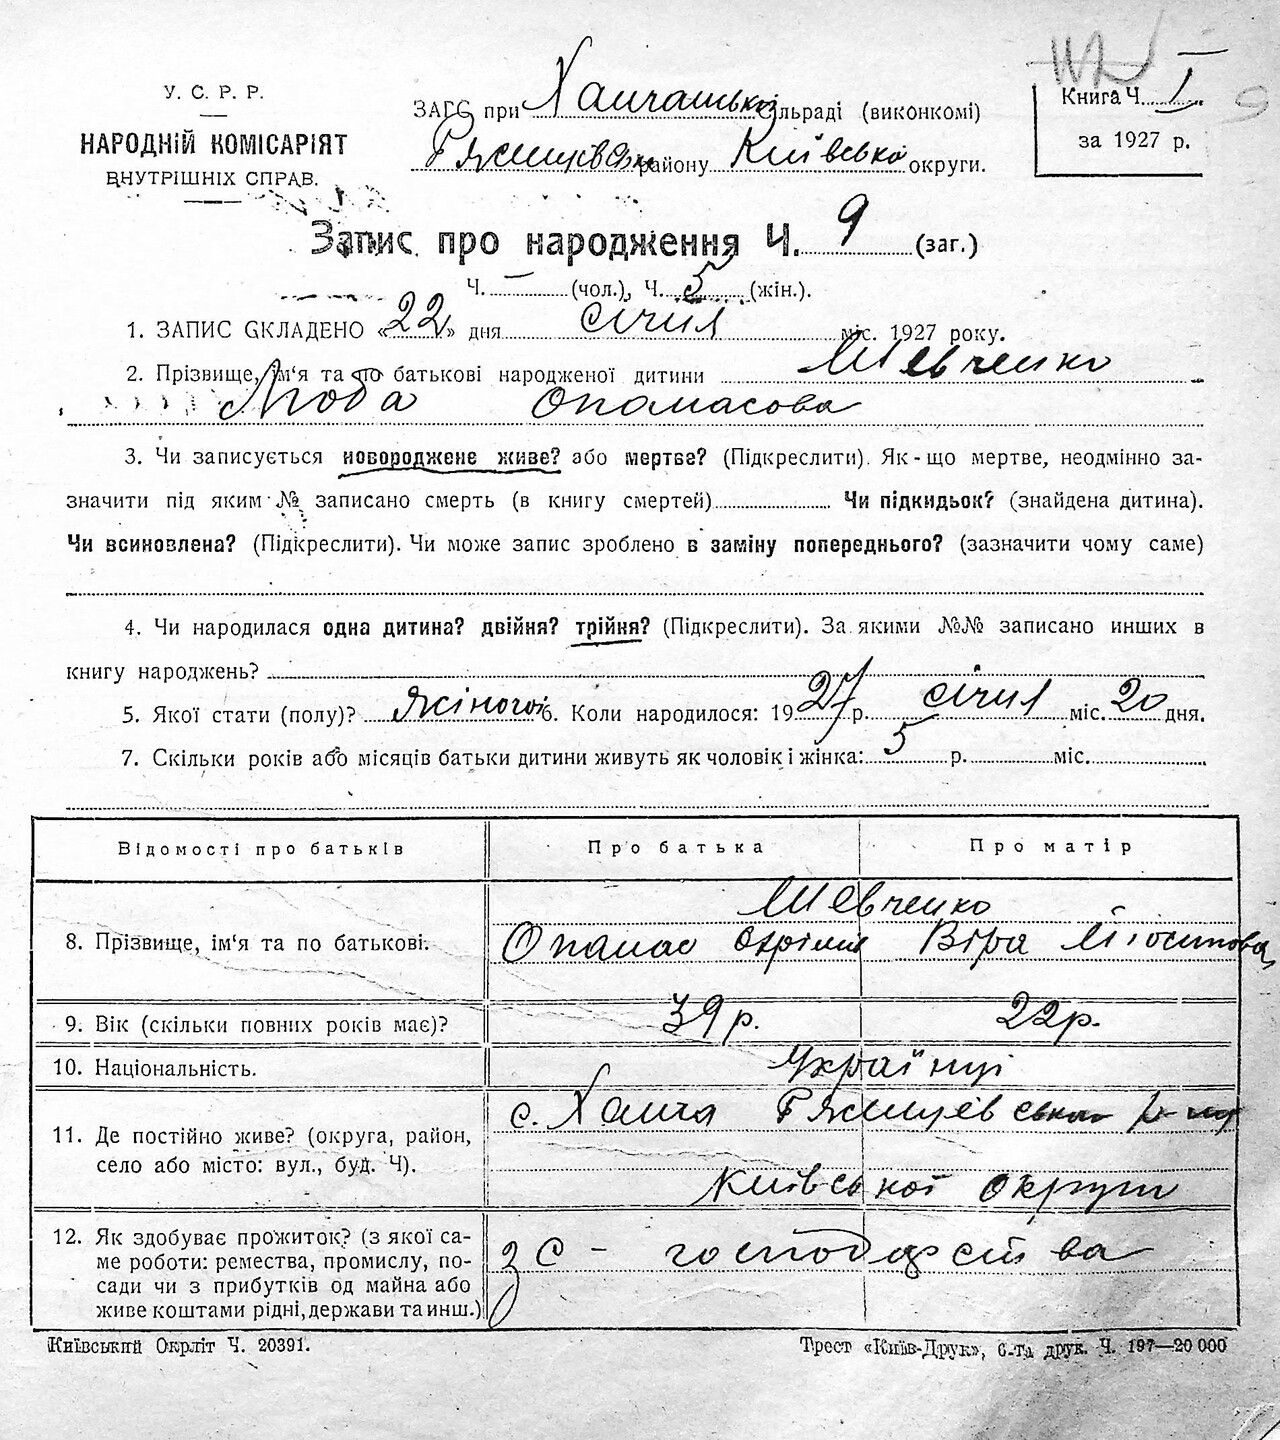 У. С. Р. Р.
НАРОДНІЙ КОМІСАРІЯТ
ВНУТРІШНІХ СПРАВ.
ЗАГС при Ханчанській сільраді (виконкомі)
Ржищівськ району Київсько округи.
Книга Ч. I
за 1927 р.
9
Запис про народження Ч. 9 (заг.)
Ч. – (чол.), Ч. 5 (жін.).
1. ЗАПИС СКЛАДЕНО «22» дня січня міс. 1927 року.
2. Прізвище, ім'я та по батькові народженої дитини Шевченко
Люба Опанасова
3. Чи записується новороджене живе? або мертве? (Підкреслити). Як-що мертве, неодмінно за-
значити під яким № записано смерть (в книгу смертей) Чи підкидьок? (знайдена дитина).
Чи всиновлена? (Підкреслити). Чи може запис зроблено в заміну попереднього? (зазначити чому саме)
4. Чи народилася одна дитина? двійня? трійня? (Підкреслити). За якими №№ записано инших в
книгу народжень?
5. Якої стати (полу)? жіночої 6. Коли народилося: 1927 р. січня міс. 20 дня.
7. Скільки років або місяців батьки дитини живуть як чоловік і жінка: 5 р. міс.
Відомості про батьків Про батька Про матір
Шевченко
8. Прізвище, ім'я та по батькові. Опанас Охрімів Віра Йосипова
9. Вік (скільки повних років має)? 39 р. 22 р.
10. Національність. Українці
с. Ханча Ржищівського р-ну
11. Де постійно живе? (округа, район,
село або місто: вул., буд. Ч).
Київської округи
12. Як здобуває прожиток? (з якої са-
ме роботи: ремества, промислу, по-
сади чи з прибутків од майна або
живе коштами рідні, держави та инш.)
з с – господарства
Київський Окрліт Ч. 20391.
Трест «Київ-Друк», 6-та друк. Ч. 197—20 000